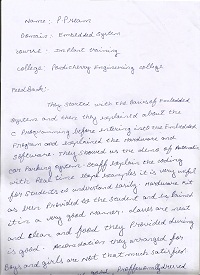 Name:- P. Priram
Domain:- Embedded System
Course:- Inplant Training
College:- Pondicherry Engineering College
Feedback:-
They started with the basics of Embedded
System and then they explained about the
C Programming before entering into the Embedded
Program and explained the Hardware and
Software. They showed us the demo of Automatic
Car Parking System. Staff explain the coding
with Real time Example it is very useful
for students to understand easily. Hardware kit
as been Provided to the student and explained
it in a very good manner. Classes are neat
and clean and food they Provided during
is good. Accomodation they arranged for
Boys and girls are not that much satisfied.
Professionally dressed